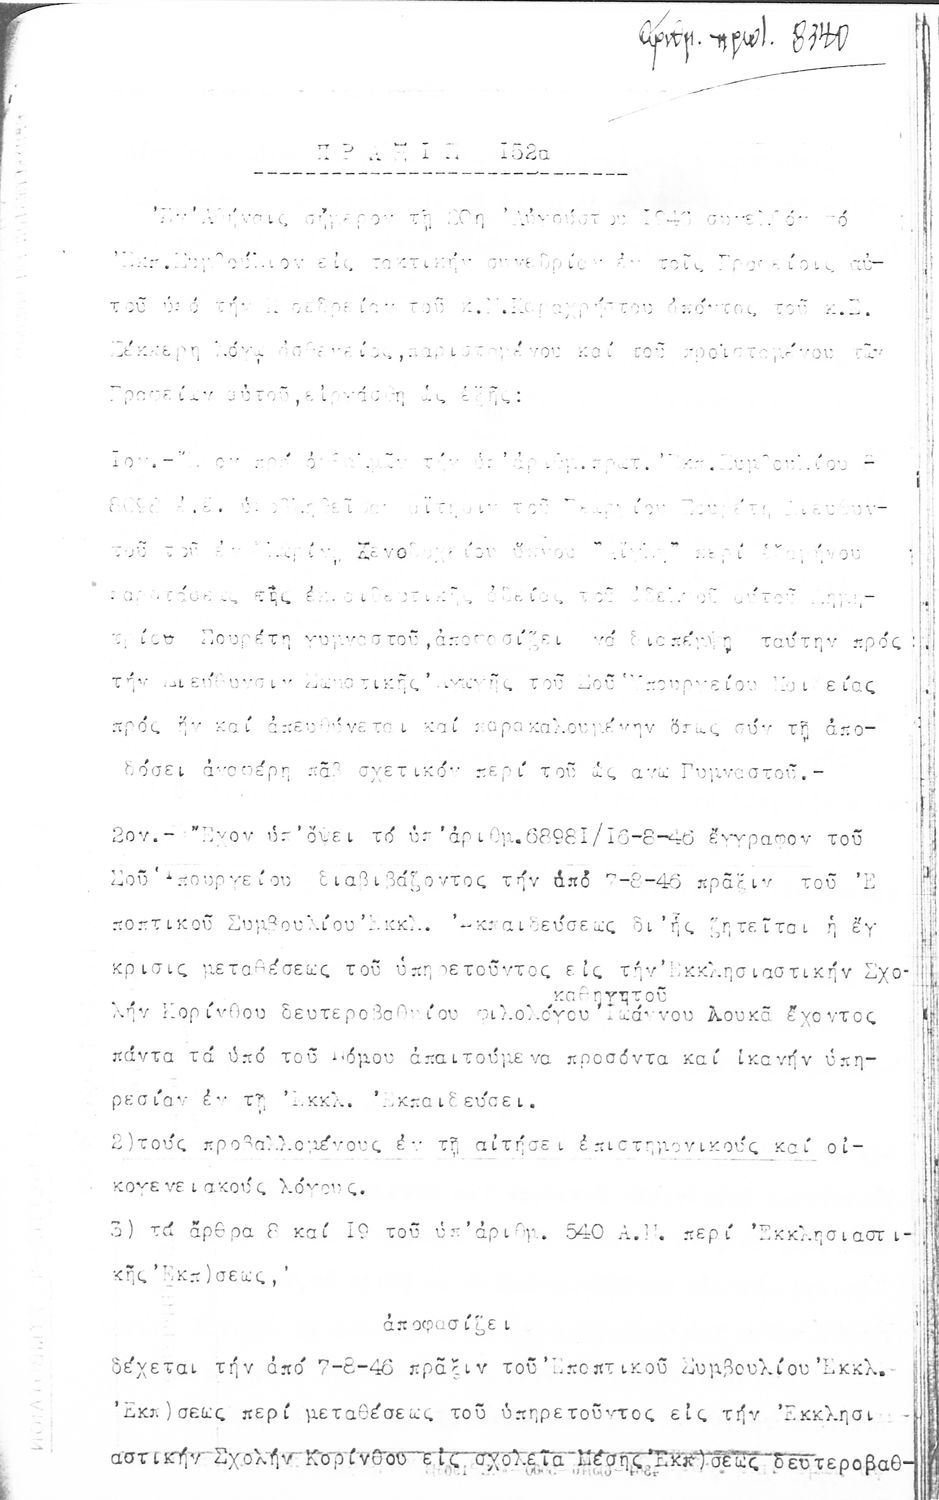 ἀριθμ. πρωτ. 8340
Π Ρ Α Ξ Ι Σ 152α
Ἐν Ἀθήναις σήμερον τῇ 20η Αὐγούστου 1946 συνελθόν τό
Ἐκπ.Συμβούλιον εἰς τακτικήν συνεδρίαν ἐν τοῖς Γραφείοις αὐ-
τοῦ ὑπό τήν Προεδρείαν τοῦ κ.Ν.Καραχρήστου ἀπόντος τοῦ κ.Ε.
λόγῳ ἀσθενείας,παρισταμένου καί τοῦ προϊσταμένου τῶν
Γραφείων αὐτοῦ,εἰργάσθη ὡς ἑξῆς:
Ιον.-Ἔχον πρό ὀφθαλμῶν τήν ὑπ'ἀριθμ.πρωτ.Ἐκπ.Συμβουλίου
8098 ἐ.ἔ. ὑποβληθεῖσαν αἴτησιν τοῦ Γεωργίου Σουρέτη Διευθυν-
τοῦ τοῦ ἐν Ξενοδοχείου ὕπνου περί ἑξαμήνου
παρατάσεως τῆς ἐκπαιδευτικῆς ἀδείας τοῦ ἀδελφοῦ αὐτοῦ Δημη-
τρίου Σουρέτη γυμναστοῦ,ἀποφασίζει νά διαπέμψῃ ταύτην πρός
τήν Διεύθυνσιν Σωματικῆς Ἀγωγῆς τοῦ Σοῦ Ὑπουργείου Παιδείας
πρός ἥν καί ἀπευθύνεται καί παρακαλουμένην ὅπως σύν τῇ ἀπο-
δόσει ἀναφέρη πᾶν σχετικόν περί τοῦ ὡς ανω Γυμναστοῦ.-
2ον.-Ἔχον ὑπ'ὄψει τό ὑπ'ἀριθμ.68981/16-8-46 ἔγγραφον τοῦ
Σοῦ Ὑπουργείου διαβιβάζοντος τήν ἀπό 7-8-46 πρᾶξιν τοῦ Ἐ
ποπτικοῦ Συμβουλίου Ἐκκλ. Ἐκπαιδεύσεως δι'ἧς ζητεῖται ἡ ἔγ
κρισις μεταθέσεως τοῦ ὑπηρετοῦντος εἰς τήν Ἐκκλησιαστικήν Σχο-
καθηγητοῦ
λήν Κορίνθου δευτεροβαθμίου φιλολόγου Ἰωάννου Λουκᾶ ἔχοντος
πάντα τά ὑπό τοῦ Νόμου ἀπαιτούμενα προσόντα καί ἱκανήν ὑπη-
ρεσίαν ἐν τῇ Ἐκκλ. Ἐκπαιδεύσει.
2)τούς προβαλλομένους ἐν τῇ αἰτήσει ἐπιστημονικούς καί οἰ-
κογενειακούς λόγους.
3) τά ἄρθρα 8 καί 19 τοῦ ὑπ'ἀριθμ. 540 Α.Ν. περί Ἐκκλησιαστι-
κῆς Ἐκπ)σεως,'
ἀποφασίζει
δέχεται τήν ἀπό 7-8-46 πρᾶξιν τοῦ Ἐποπτικοῦ Συμβουλίου Ἐκκλ.-
Ἐκπ)σεως περί μεταθέσεως τοῦ ὑπηρετοῦντος εἰς τήν Ἐκκλησι
αστικήν Σχολήν Κορίνθου εἰς σχολεῖα Μέσης Ἐκπ)σεως δευτεροβαθ-